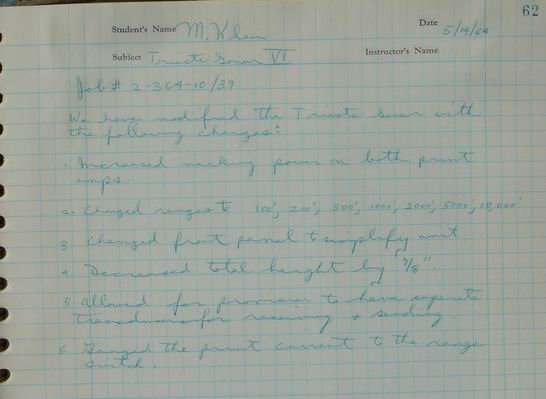 62
Student's Name M. Klein Date 5/14/64
Subject Trieste Sonar VI Instructor's Name
Job # 2-364-10/39
We have modified the Trieste Sonar with
the following changes:
1. Increased marking power on both print
amps.
2. Changed ranges to 100', 200', 500', 1000', 2000', 5000', 10,000'
3. Changed front panel to simplify unit
4. Decreased total height by 7/8".
5. Allowed for provision to have seperate
transducers for receiving & sending.
6. Ganged the print current to the range
switch.